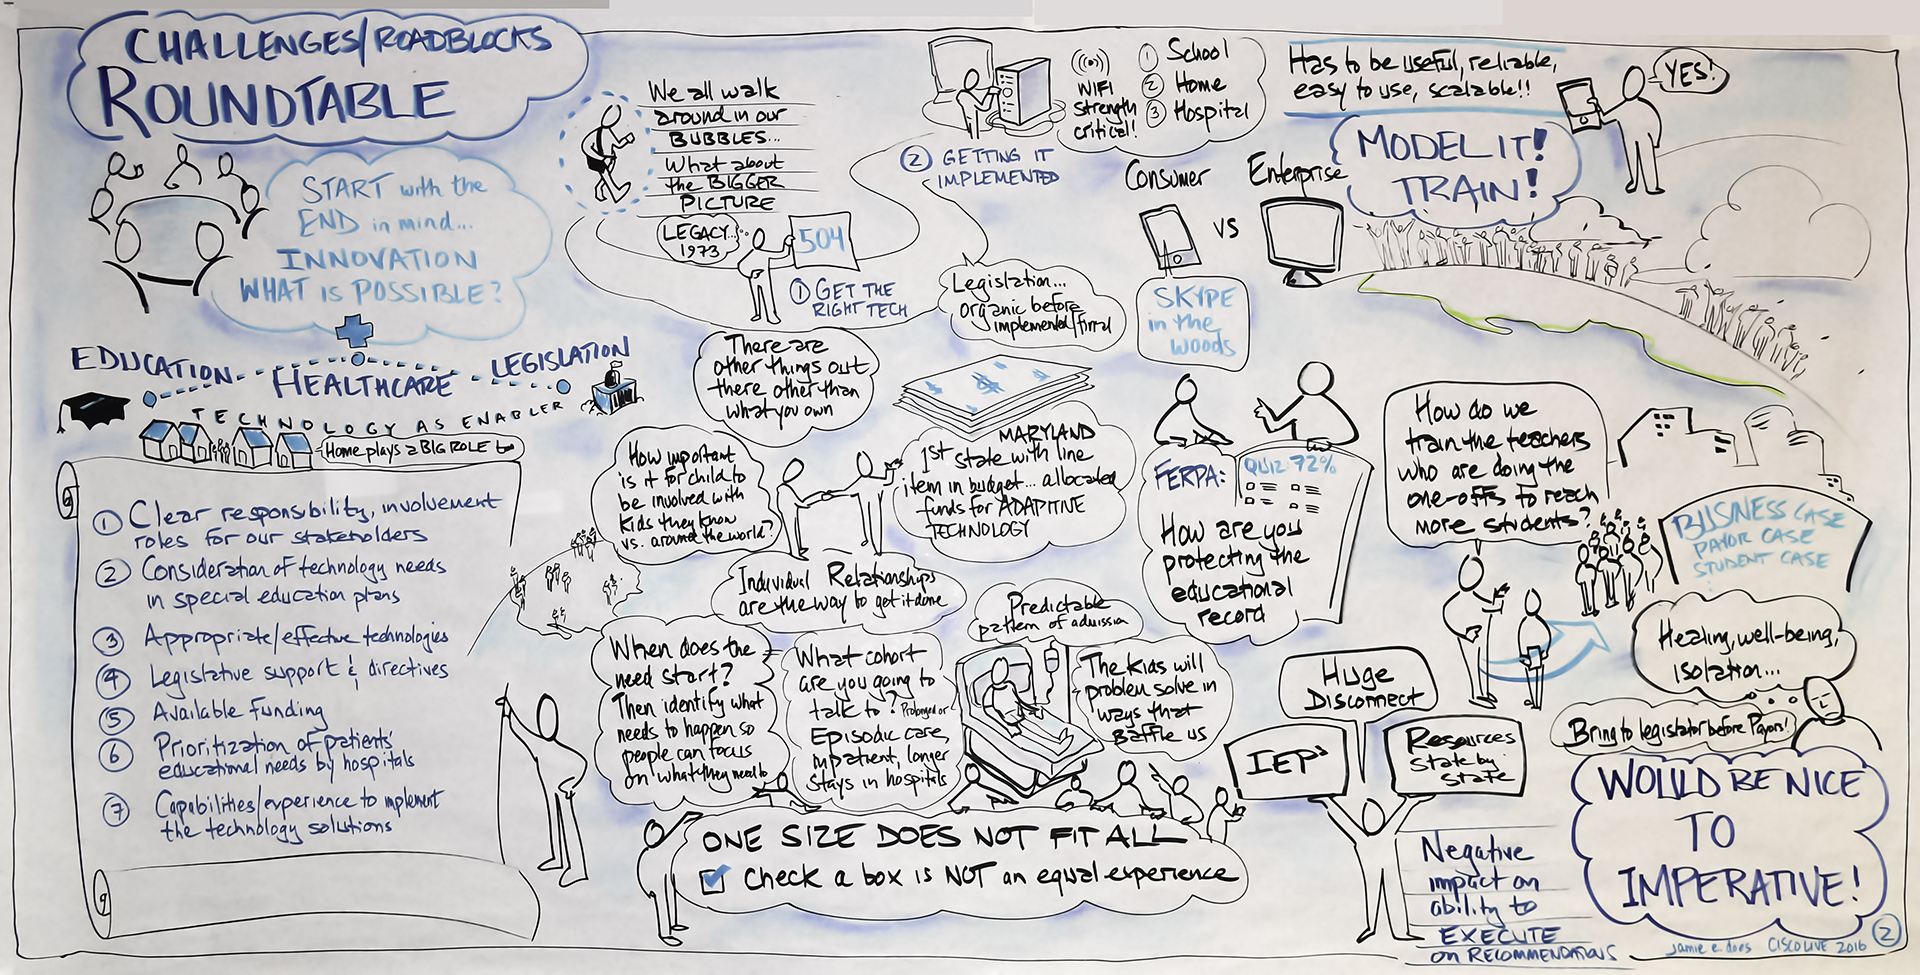 CHALLENGES/ROADBLOCKS
ROUNDTABLE
START with the
END in mind...
INNOVATION
WHAT IS POSSIBLE?
EDUCATION
HEALTHCARE
LEGISLATION
TECHNOLOGY AS ENABLER
Home plays a BIG ROLE too
① Clear responsibility, involvement
roles for our stakeholders
② Consideration of technology needs
in special education plans
③ Appropriate/effective technologies
④ Legislative support & directives
⑤ Available Funding
⑥ Prioritization of patients'
educational needs by hospitals
⑦ Capabilities/experience to implement
the technology solutions
We all walk
around in our
BUBBLES...
What about
the BIGGER
PICTURE
LEGACY...
1973
504
① GET THE
RIGHT TECH
② GETTING IT
IMPLEMENTED
WIFI
strength
critical!
① School
② Home
③ Hospital
Legislation...
organic before
implemented/final
Consumer
VS
Enterprise
SKYPE
in the
woods
Has to be useful, reliable,
easy to use, scalable!!
YES!
MODEL IT!
TRAIN!
There are
other things out
there other than
what you own
How important
is it for child to
be involved with
kids they know
vs. around the world?
MARYLAND
1st
state with line
item in budget... allocated
funds for ADAPTIVE
TECHNOLOGY
Individual Relationships
are the way to get it done
FERPA:
QUIZ: 72%
How are you
protecting the
educational
record
How do we
train the teachers
who are doing the
one-offs to reach
more students?
BUSINESS CASE
PAYOR CASE
STUDENT CASE
Healing, well-being,
isolation...
Bring to legislator before Payors!
When does the
need start?
Then identify what
needs to happen so
people can focus
on what they need to
What cohort
are you going to
talk to? Prolonged or
Episodic care,
inpatient, longer
stays in hospitals
Predictable
pattern of admission
The kids will
problem solve in
ways that
Baffle us
Huge
Disconnect
IEPs
Resources
state by
state
ONE SIZE DOES NOT FIT ALL
Check a box is NOT an equal experience
Negative
impact on
ability to
EXECUTE
on RECOMMENDATIONS
WOULD BE NICE
TO
IMPERATIVE!
jamie e. does CISCO LIVE 2016
②